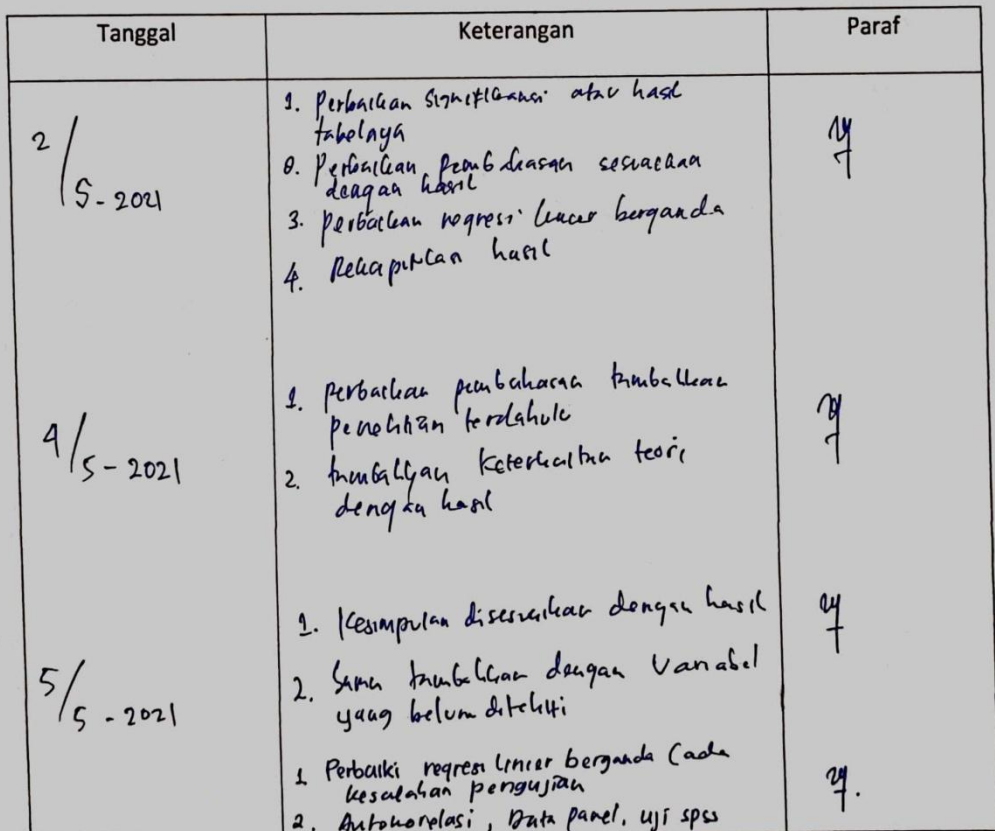 Tanggal
Keterangan
Paraf
2/5-2021
1. Perbaikan Signifikansi atau hasil
tabelnya
2. Perbaikan pembahasan sesuaikan
dengan hasil
3. perbaikan regresi linear berganda
4. Rekapitulan hasil
4/5-2021
1. perbaikan pembahasan tambahkan
penelitian terdahulu
2. tambahkan keterkaitan teori
dengan hasil
5/5-2021
1. Kesimpulan disesuaikan dengan hasil
2. Saran tambahkan dengan Variabel
yang belum diteliti
1 Perbaiki regresi linier berganda (ada
kesalahan pengujian
2. Autokorelasi, Data panel, uji spss